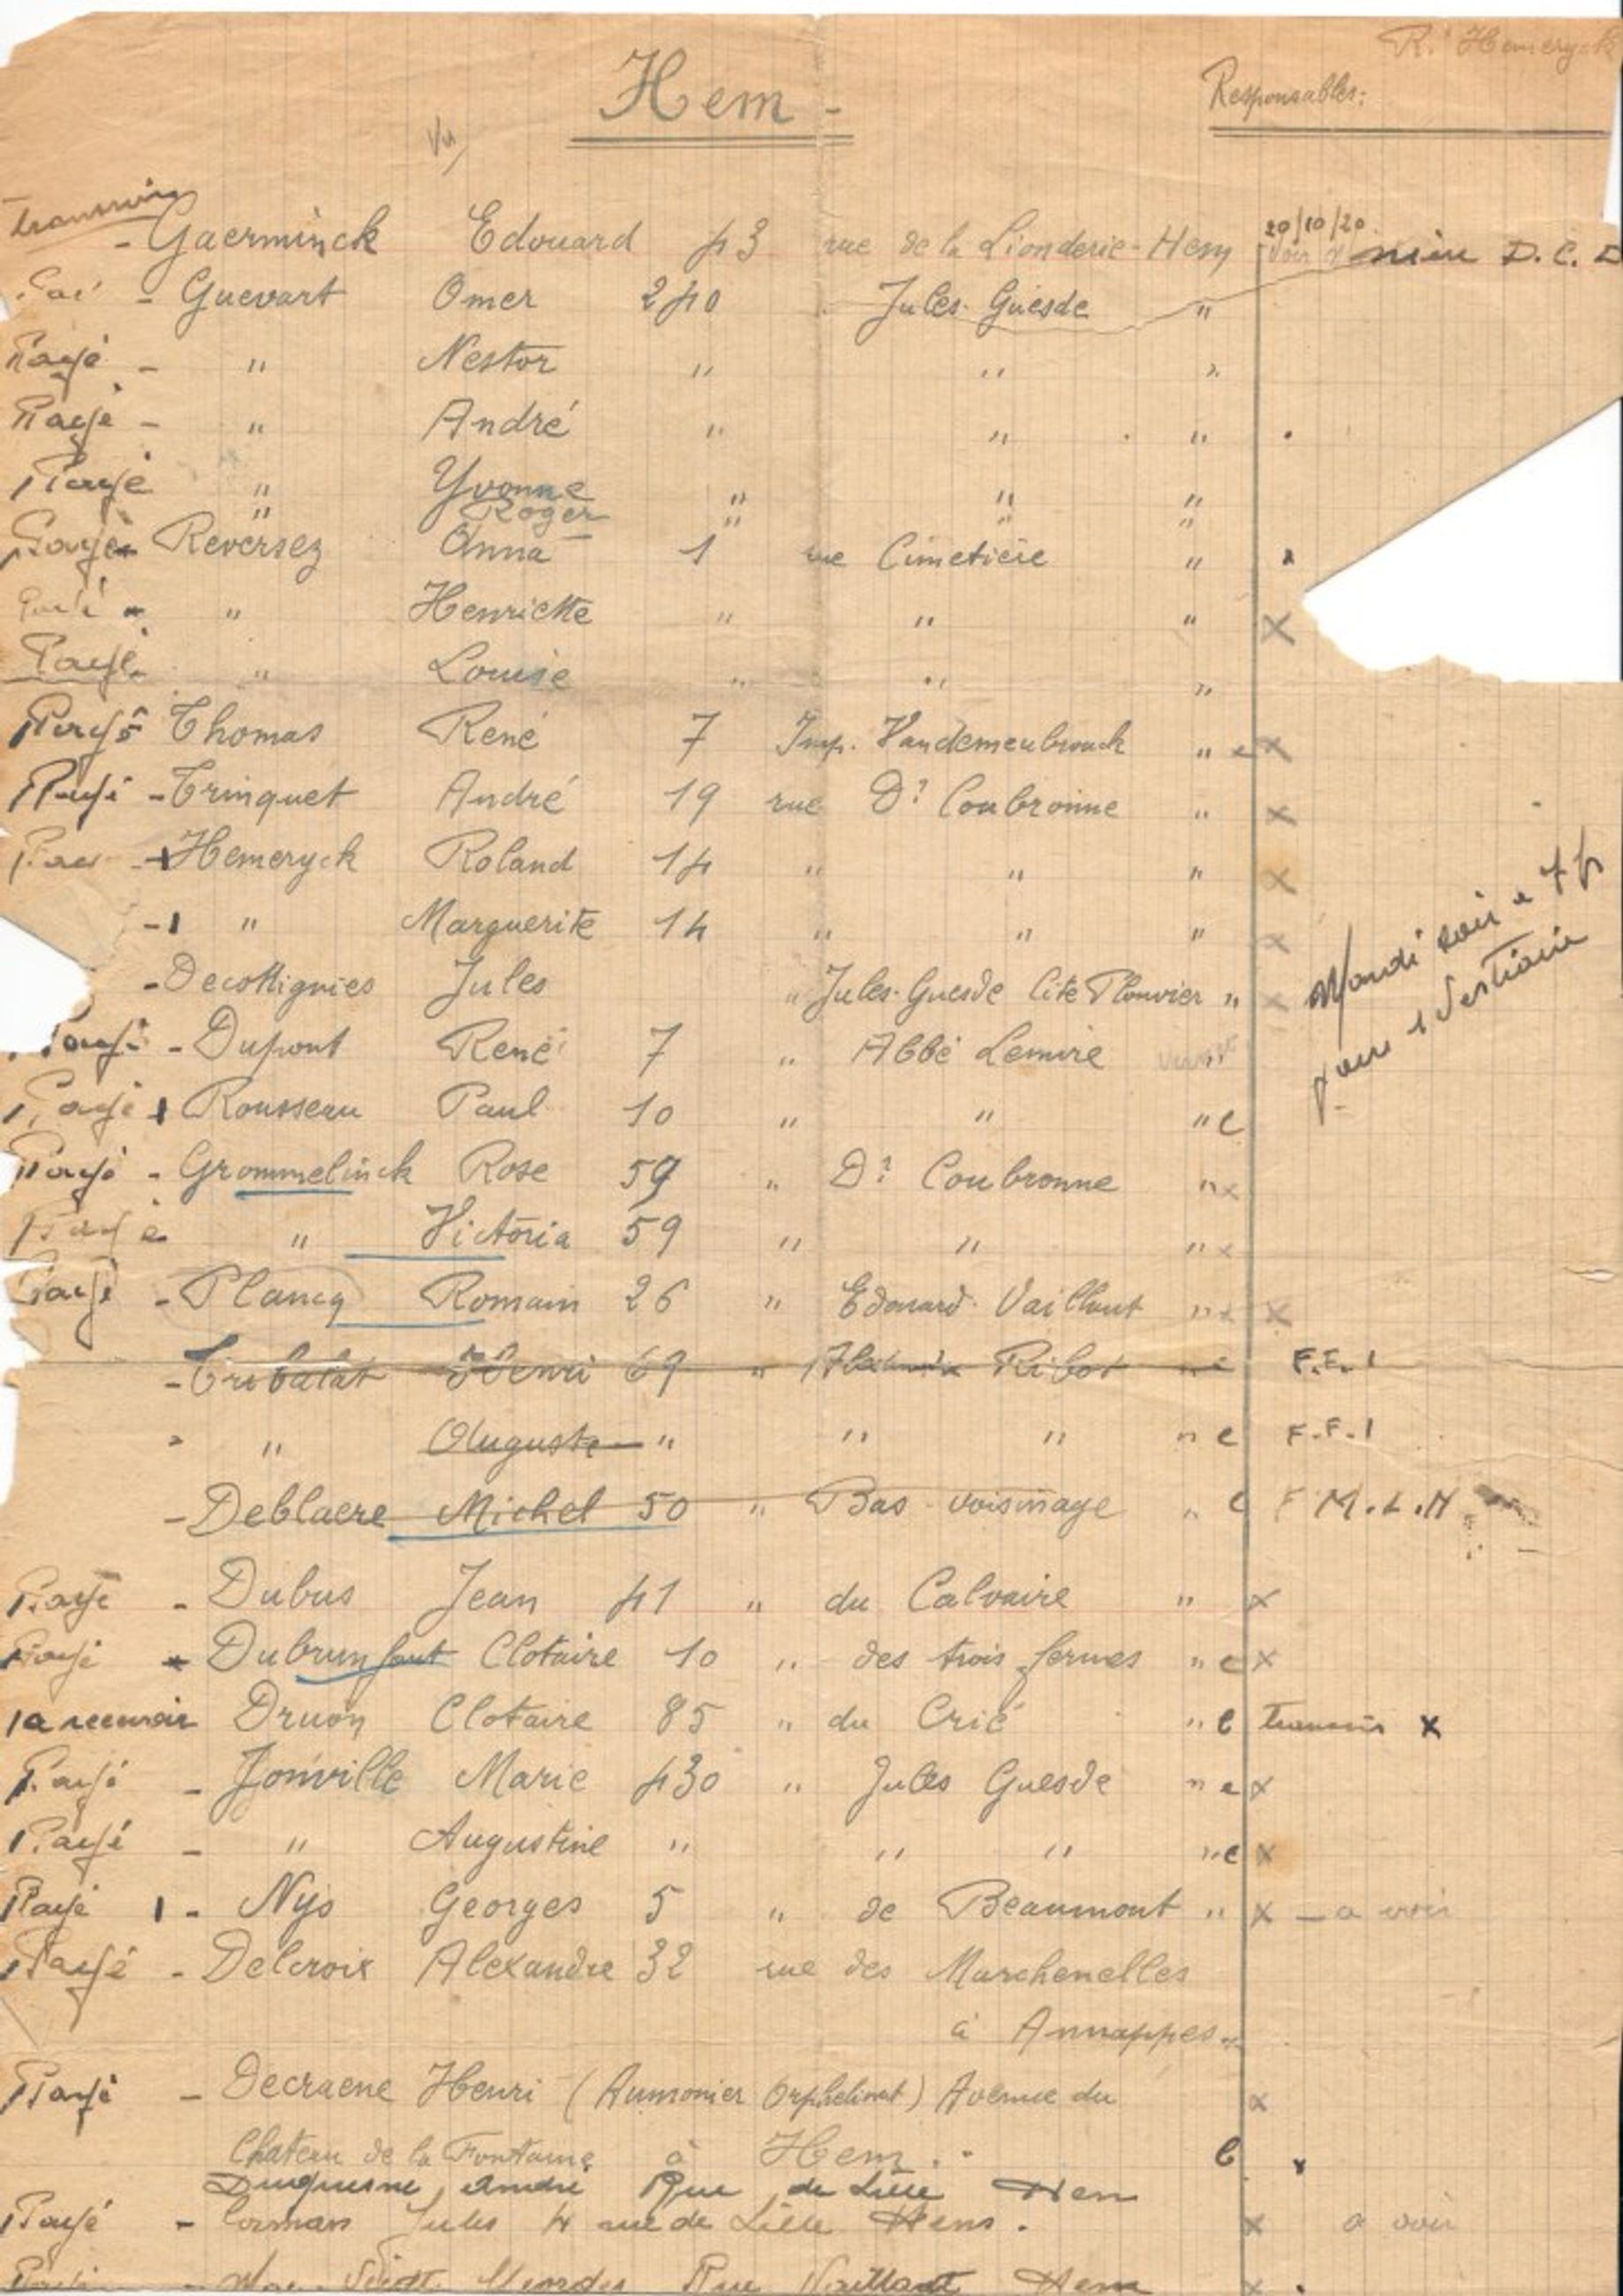 R. Hemeryck
Hem - Responsables:
Vu
- Gaerminck Edouard 43 rue de la Lionderie - Hem 20/10/20 Voir D.C.D
- Guevart Omer 240 Jules-Guesde "
Payé - " Nestor " " "
Payé - " André " " "
Payé " Yvonne " " "
" Roger " " "
Payé Reversez Anna 1 rue Cimetière "
Payé " Henriette " " " x
Payé " Louise " " "
Payé Thomas René 7 Imp. Vandemeulbrouck " x
Payé - Trinquet André 19 rue Dr Coubronne " x
- Hemeryck Roland 14 " " " x
-1 " Marguerite 14 " " " x
- Decottignies Jules " Jules-Guesde Cité Plouvier " x
Mardi soir a 7h
pour 1 Vestiaire
Payé - Dupont René 7 " Abbé Lemire "
Payé Rousseau Paul 10 " " " e
Payé - Grommelinck Rose 59 " Dr Coubronne " x
Payé " Victoria 59 " " " x
Payé - Plancq Romain 26 " Edouard-Vaillant " x x
- Tribalat Henri 69 " Ribot " e F.F.I
" Auguste " " " " e F.F.I
- Deblaere Michel 50 " Bas-voisinage " e F M.L.N
Payé - Dubus Jean 41 " du Calvaire " x
Payé Dubrunfaut Clotaire 10 " des trois fermes " e x
a recevoir Druon Clotaire 85 " du Crié " e x
Payé - Jonville Marie 430 " Jules Guesde " e x
Payé - " Augustine " " " " e x
Payé 1 - Nys Georges 5 " de Beaumont " x - a voir
Payé - Delcroix Alexandre 32 rue des Marchenelles
à Annappes
Payé - Decraene Henri (Aumonier Orphelinat) Avenue du x
Chateau de la Fontaine à Hem. e
Duquesne, André Rue de Lille Hem
Payé - Cosman Jules 4 rue de Lille Hem. x a voir
Rue Vaillant Hem x